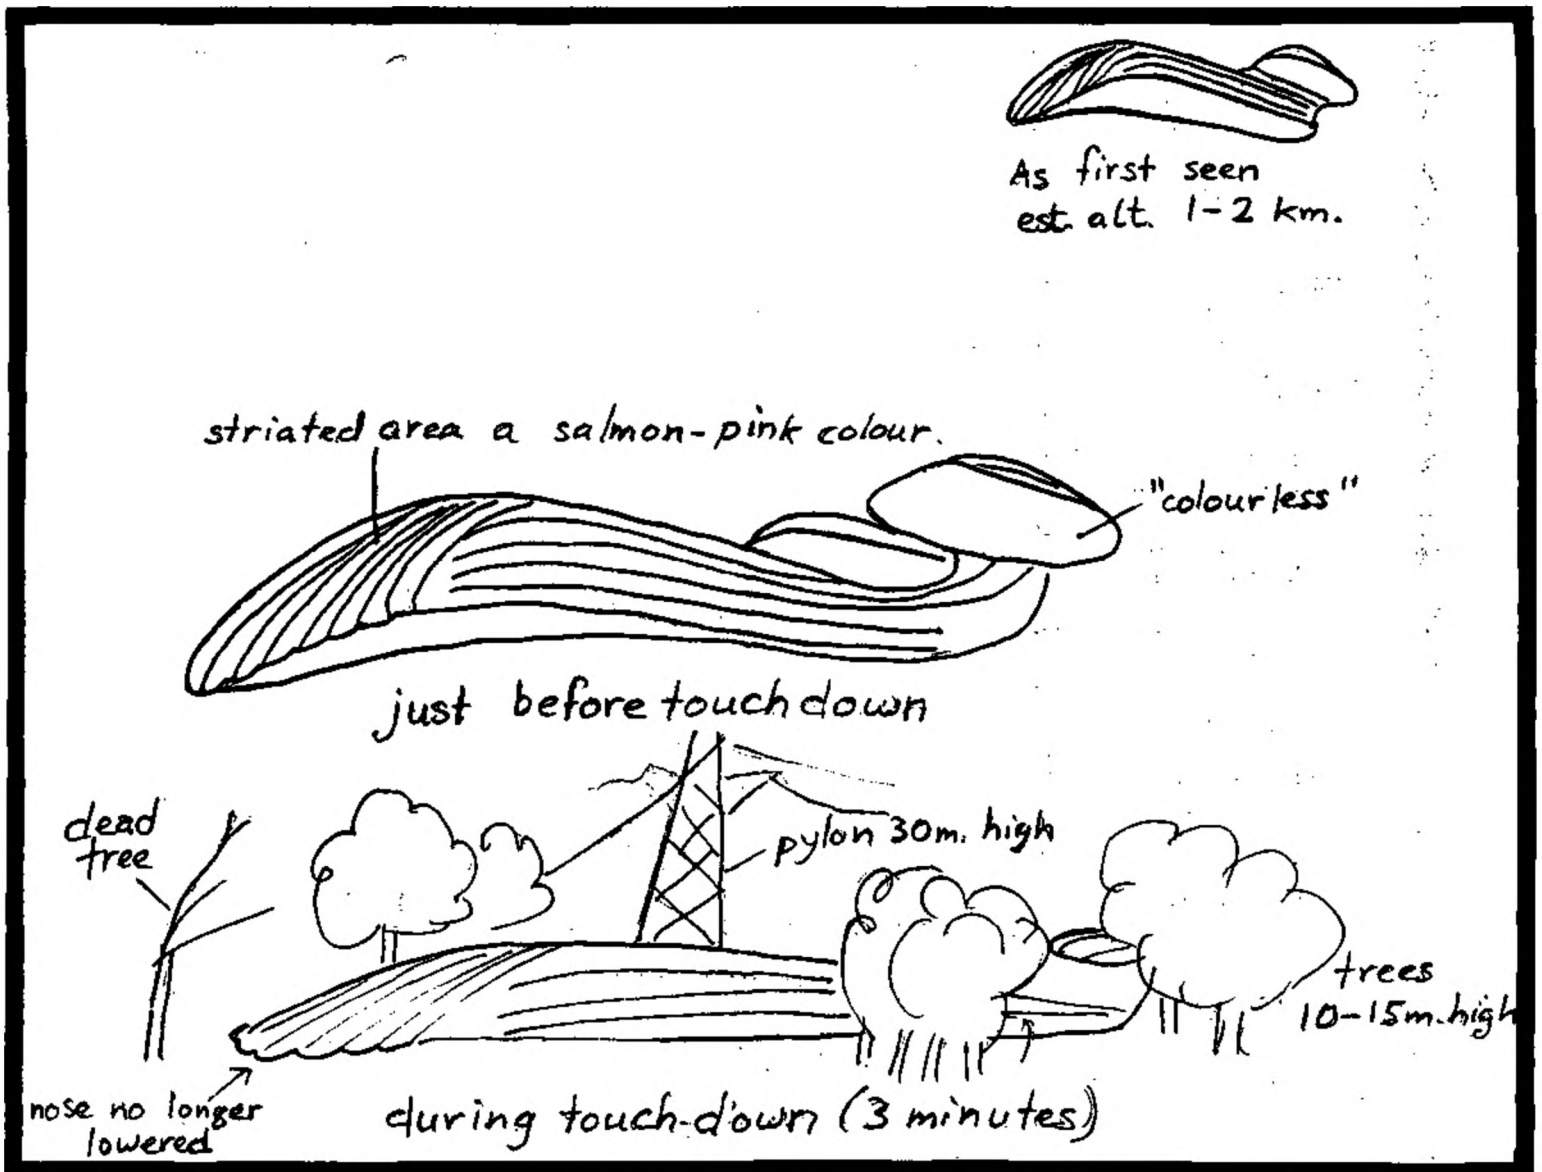 As first seen
est. alt. 1-2 km.
striated area a salmon-pink colour.
"colourless"
just before touchdown
dead
tree
pylon 30m. high
trees
10-15m. high
nose no longer
lowered
during touch-down (3 minutes)